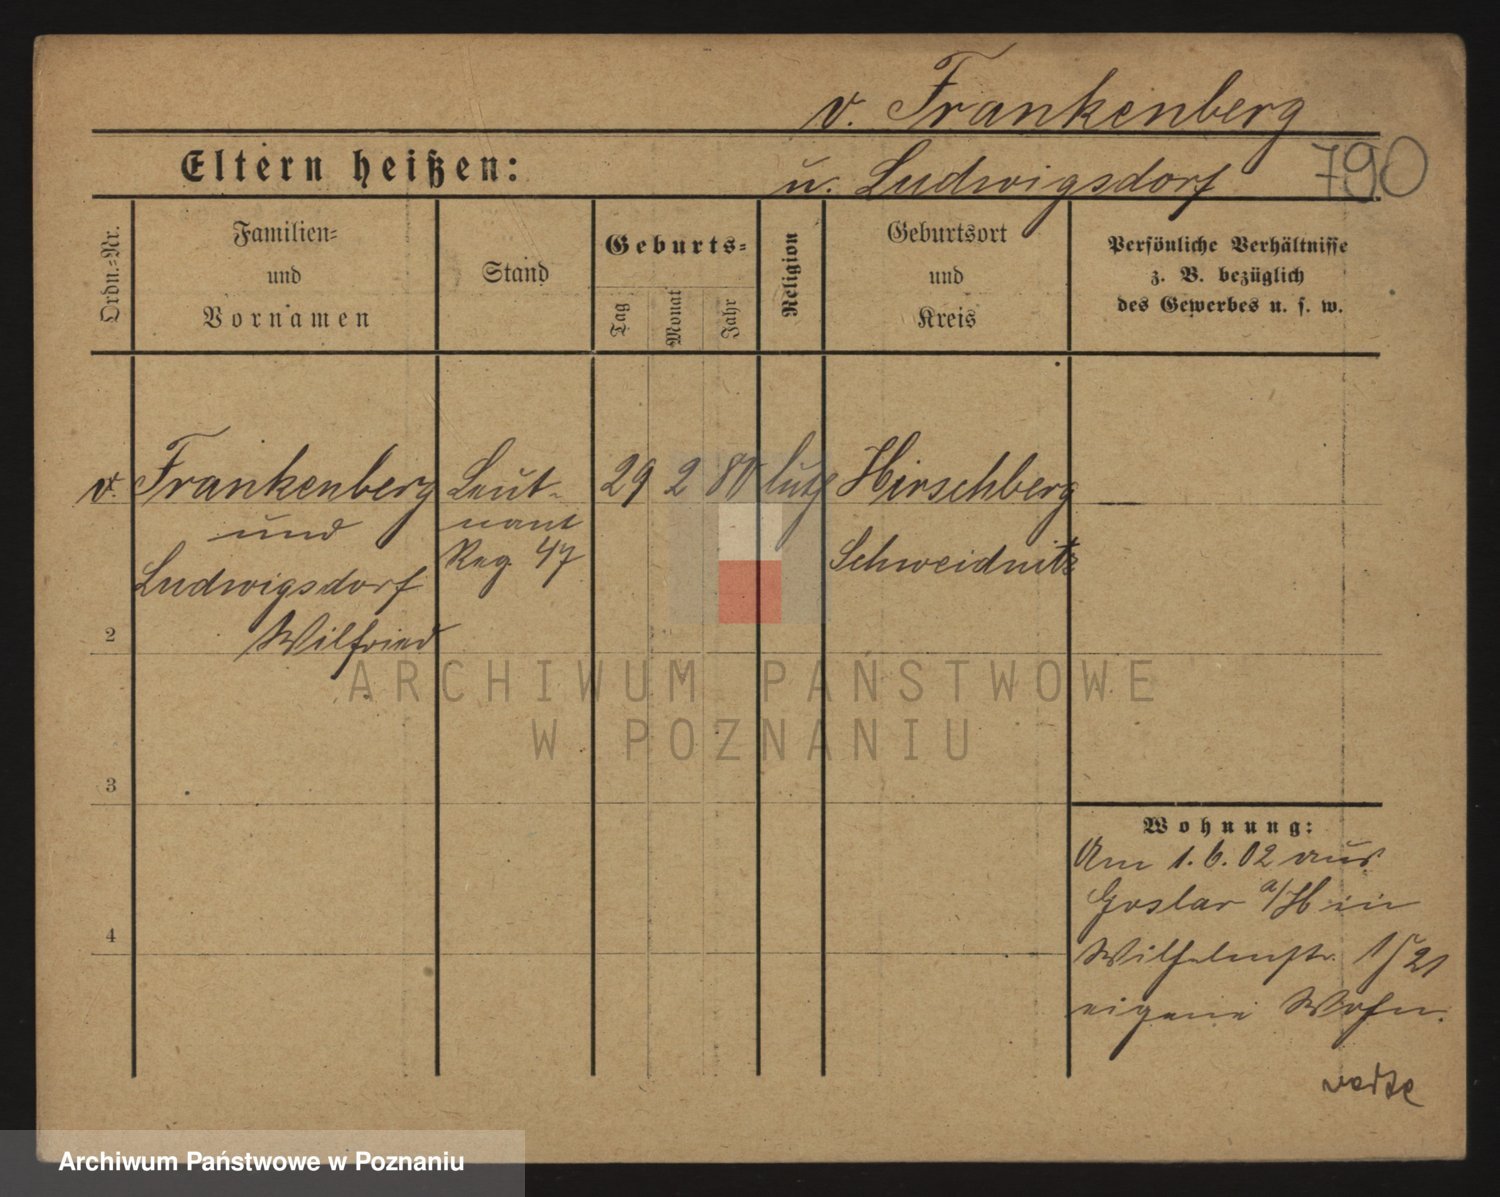 v. Frankenberg
Eltern heißen:
u. Ludwigsdorf
790
Ordn.=Nr.
Familien=
und
Vornamen
Stand
Geburts=
Tag
Monat
Jahr
Religion
Geburtsort
und
Kreis
Persönliche Verhältnisse
z. B. bezüglich
des Gewerbes u. s. w.
v. Frankenberg
und
Ludwigsdorf
Wilfried
Leut-
nant
Reg. 47
29 2 80
luth
Hirschberg
Schweidnitz
2
3
4
Wohnung:
Am 1.6.02 aus
Goslar a/H in
Wilhelmstr. 21
eigene Wohn.
ARCHIWUM PAŃSTWOWE
W POZNANIU
Archiwum Państwowe w Poznaniu